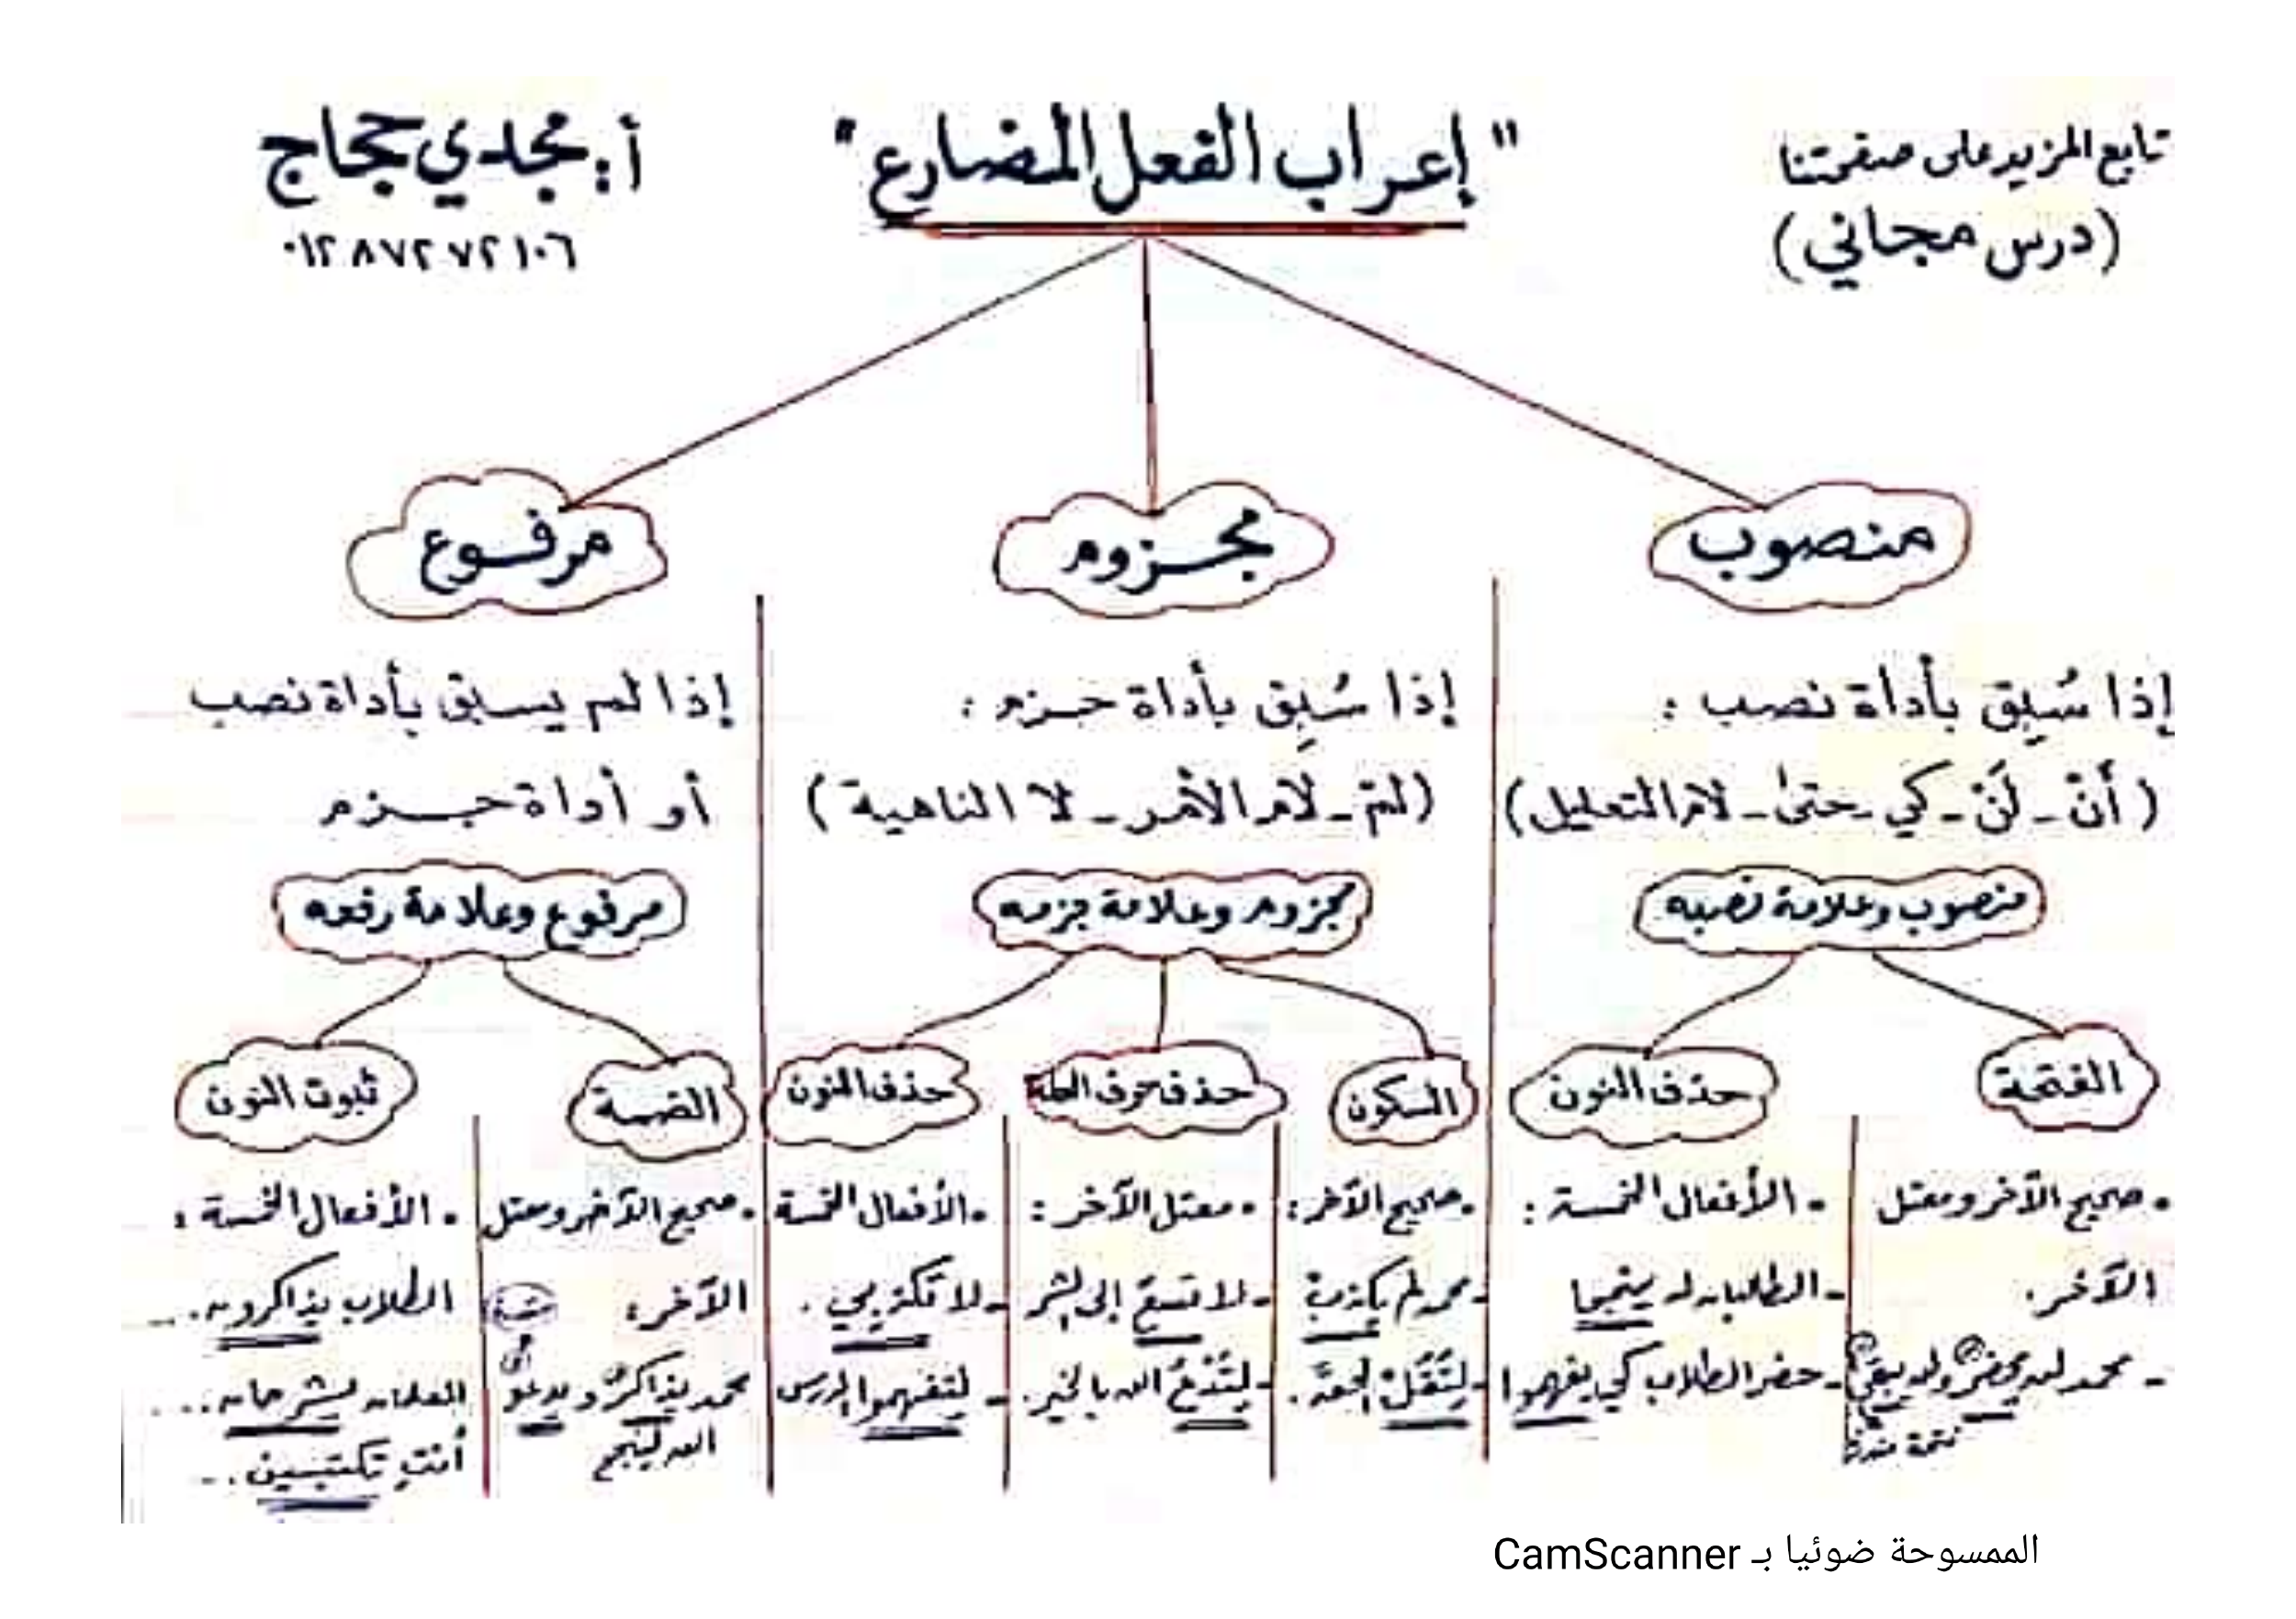 تابع المزيد على صفحتنا
(درس مجاني)
" إعراب الفعل المضارع "
أ: مجدي حجاج
٠١٢٨٧٢٧٢١٠٦
منصوب
إذا سُبِق بأداة نصب :
( أَنْ - لَنْ - كي - حتى - لام التعليل )
منصوب وعلامة نصبه
الفتحة
• صحيح الآخر ومعتل
الآخر .
- محمد لن يحضر ولن يبقى
حذف النون
• الأفعال الخمسة :
- الطالبان لن ينجحا
- حضر الطلاب كي يفهموا
مجزوم
إذا سُبِق بأداة جزم :
( لمْ - لام الأمر - لا الناهية )
مجزوم وعلامة جزمه
السكون
• صحيح الآخر :
- محمد لم يكذبْ
- لِتَقُلْ الحقَّ .
حذف حرف العلة
• معتل الآخر :
- لا تسعَ إلى الشر
- لِتَدْعُ الله بالخير .
حذف النون
• الأفعال الخمسة
- لا تكذبي .
- لتفهموا الدرس
مرفوع
إذا لم يسبق بأداة نصب
أو أداة جزم
مرفوع وعلامة رفعه
الضمة
• صحيح الآخر ومعتل
الآخر :
محمد يذاكرُ ويدعو
الله لينجح
ثبوت النون
• الأفعال الخمسة :
الطلاب يذاكرون ...
المعلمان يشرحان ...
أنتِ تكتبين ...
الممسوحة ضوئيا بـ CamScanner